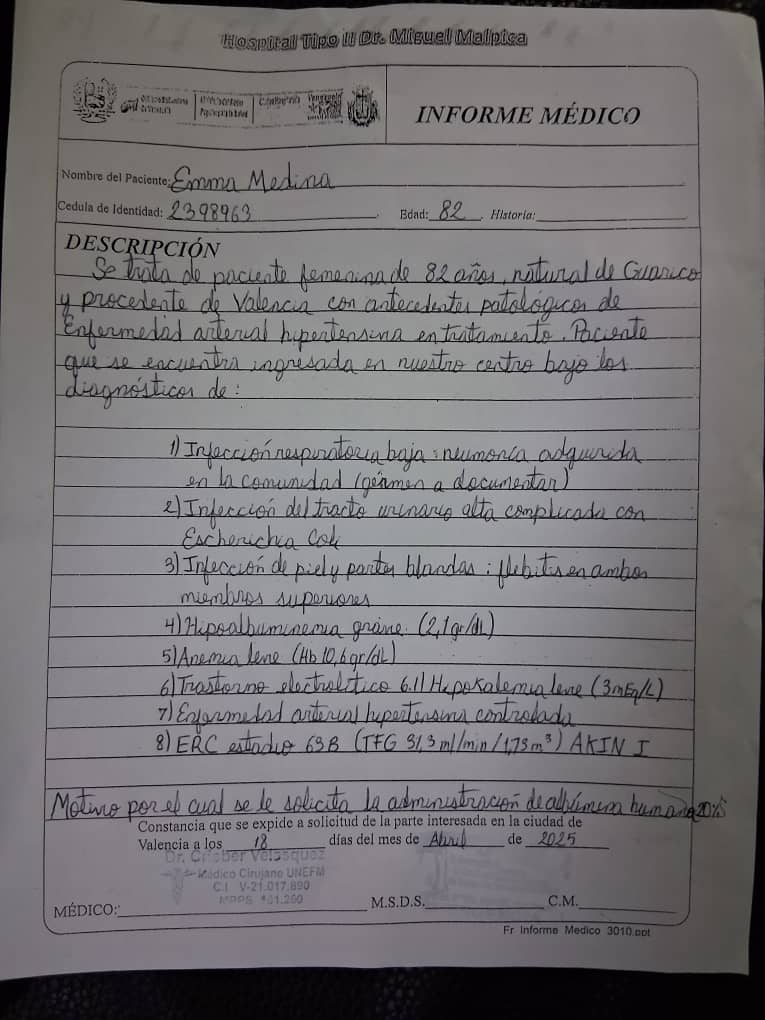 Hospital Tipo II Dr. Miguel Malpica
INFORME MÉDICO
Nombre del Paciente: Emma Medina
Cedula de Identidad: 2398963 Edad: 82 Historia:
DESCRIPCIÓN
Se trata de paciente femenina de 82 años, natural de Guarico
y procedente de Valencia con antecedentes patológicos de
Enfermedad arterial hipertensiva en tratamiento. Paciente
que se encuentra ingresada en nuestro centro bajo los
diagnósticos de:
1) Infección respiratoria baja: neumonía adquirida
en la comunidad (gérmen a documentar)
2) Infección del tracto urinario alta complicada con
Escherichia Coli
3) Infección de piel y partes blandas: flebitis en ambos
miembros superiores
4) Hipoalbuminemia grave (2,1 gr/dL)
5) Anemia leve (Hb 10,6 gr/dL)
6) Trastorno electrolítico 6.1) Hipokalemia leve (3mEq/L)
7) Enfermedad arterial hipertensiva controlada
8) ERC estadio G3B (TFG 31,3 ml/min/1,73m³) AKIN I
Motivo por el cual se le solicita la administración de albúmina humana 20%
Constancia que se expide a solicitud de la parte interesada en la ciudad de
Valencia a los 18 días del mes de Abril de 2025
Dr. Crisber Velasquez
Médico Cirujano UNEFM
C.I V-21.017.890
MPPS
MÉDICO: M.S.D.S. C.M.
Fr Informe Medico 3010.ppt